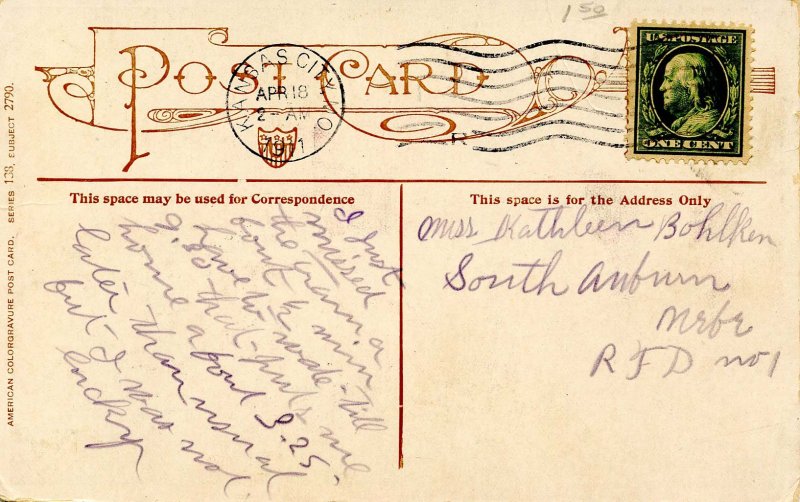 1 50
POST CARD
KANSAS CITY, MO.
APR 18
2 - AM
1911
U.S. POSTAGE
ONE CENT
This space may be used for Correspondence
This space is for the Address Only
I just
missed
the train a
bout min
have to wate till
9.30 that puts me
home about 3.25
later than usual
but I was not
lucky
Miss Kathleen Bohlken
South Auburn
Nebr
R F D no 1
AMERICAN COLORGRAVURE POST CARD. SERIES 138, SUBJECT 2790.